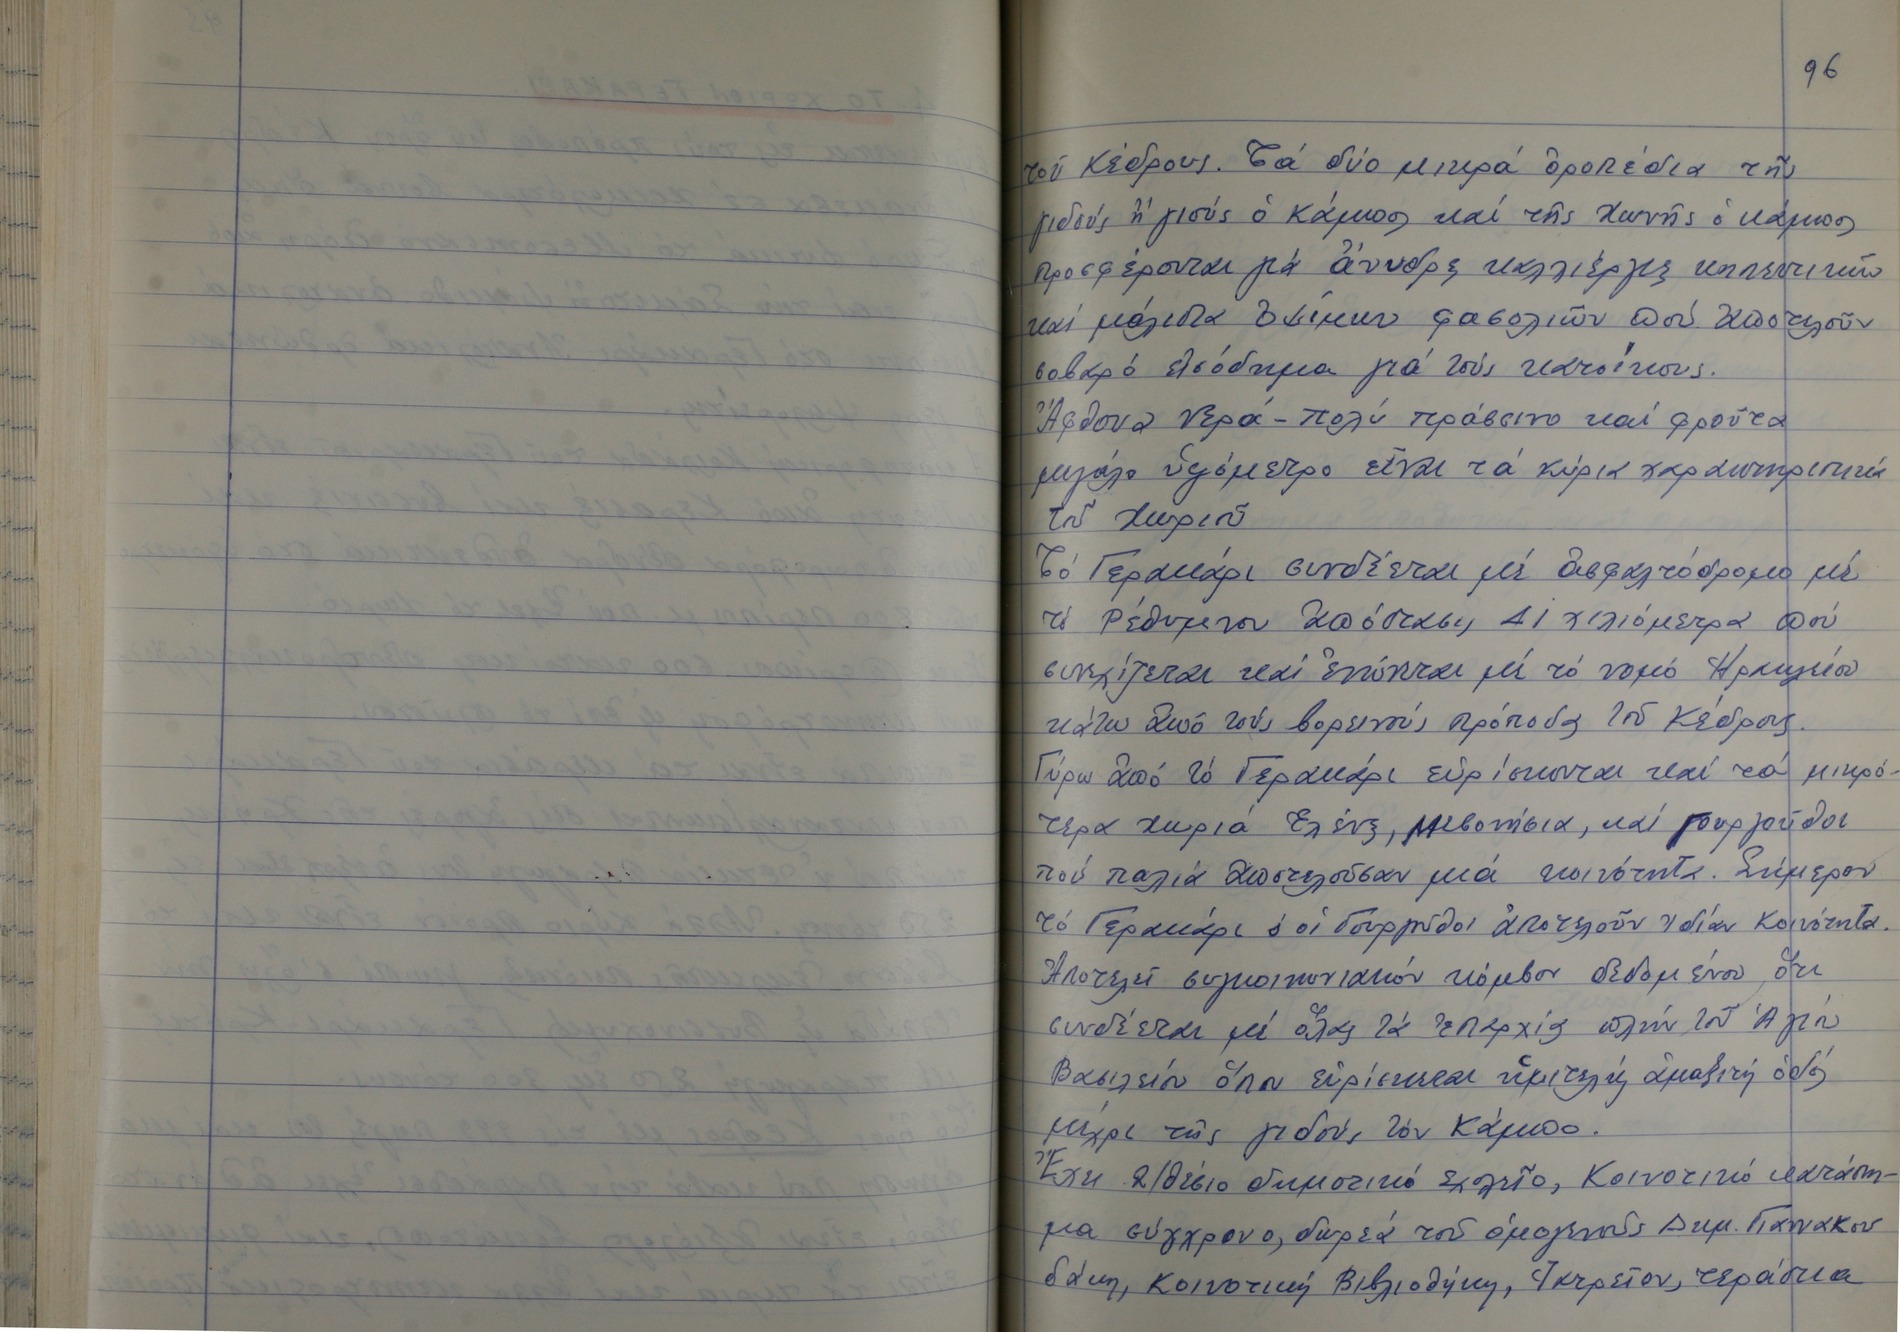 96
τοῦ Κέδρους. Τά δύο μικρά ὀροπέδια τῆς
γιδούς ἤ γιούς ὁ κάμπος καί τῆς Χωνῆς ὁ κάμπος
προσφέρονται γιά ἄνυδρες καλλιέργιες κηπευτικῶν
καί μάλιστα ὀψίμων φασολιῶν πού ἀποτελοῦν
σοβαρό εἰσόδημα γιά τούς κατοίκους.
Ἄφθονα νερά - πολύ πράσινο καί φροῦτα
μεγάλο ὑψόμετρο εἶναι τά κύρια χαρακτηριστικά
τοῦ χωριοῦ
Τό Γερακάρι συνδέεται μέ ἀσφαλτόδρομο μέ
τό Ρέθυμνον ἀπόστασις 41 χιλιόμετρα πού
συνεχίζεται καί ἑνώνεται μέ τό νομό Ἡρακλείου
κάτω ἀπό τούς βορεινούς πρόποδες τοῦ Κέδρους.
Γύρω ἀπό τό Γερακάρι εὑρίσκονται καί τά μικρό-
τερα χωριά Ἑλένες, Μεσονήσια, καί Γουργοῦθοι
πού παλιά ἀποτελοῦσαν μιά κοινότητα. Σήμερον
τό Γερακάρι & οἱ Γουργοῦθοι ἀποτελοῦν ἰδίαν Κοινότητα.
Ἀποτελεῖ συγκοινωνιακόν κόμβον δεδομένου ὅτι
συνδέεται μέ ὅλας τά ἐπαρχίας πλήν τοῦ Ἁγίου
Βασιλείου ὅπου εὑρίσκεται ἡμιτελής ἁμαξιτή ὁδός
μέχρι τῆς γιδούς τόν Κάμπο.
Ἔχει 2/θέσιο δημοτικό σχολεῖο, Κοινοτικό κατάστη-
μα σύγχρονο, δωρεά τοῦ ὁμογενοῦς Δημ. Γιαννακου
δάκη, Κοινοτική Βιβλιοθήκη, Ἰατρεῖον, τεράστια